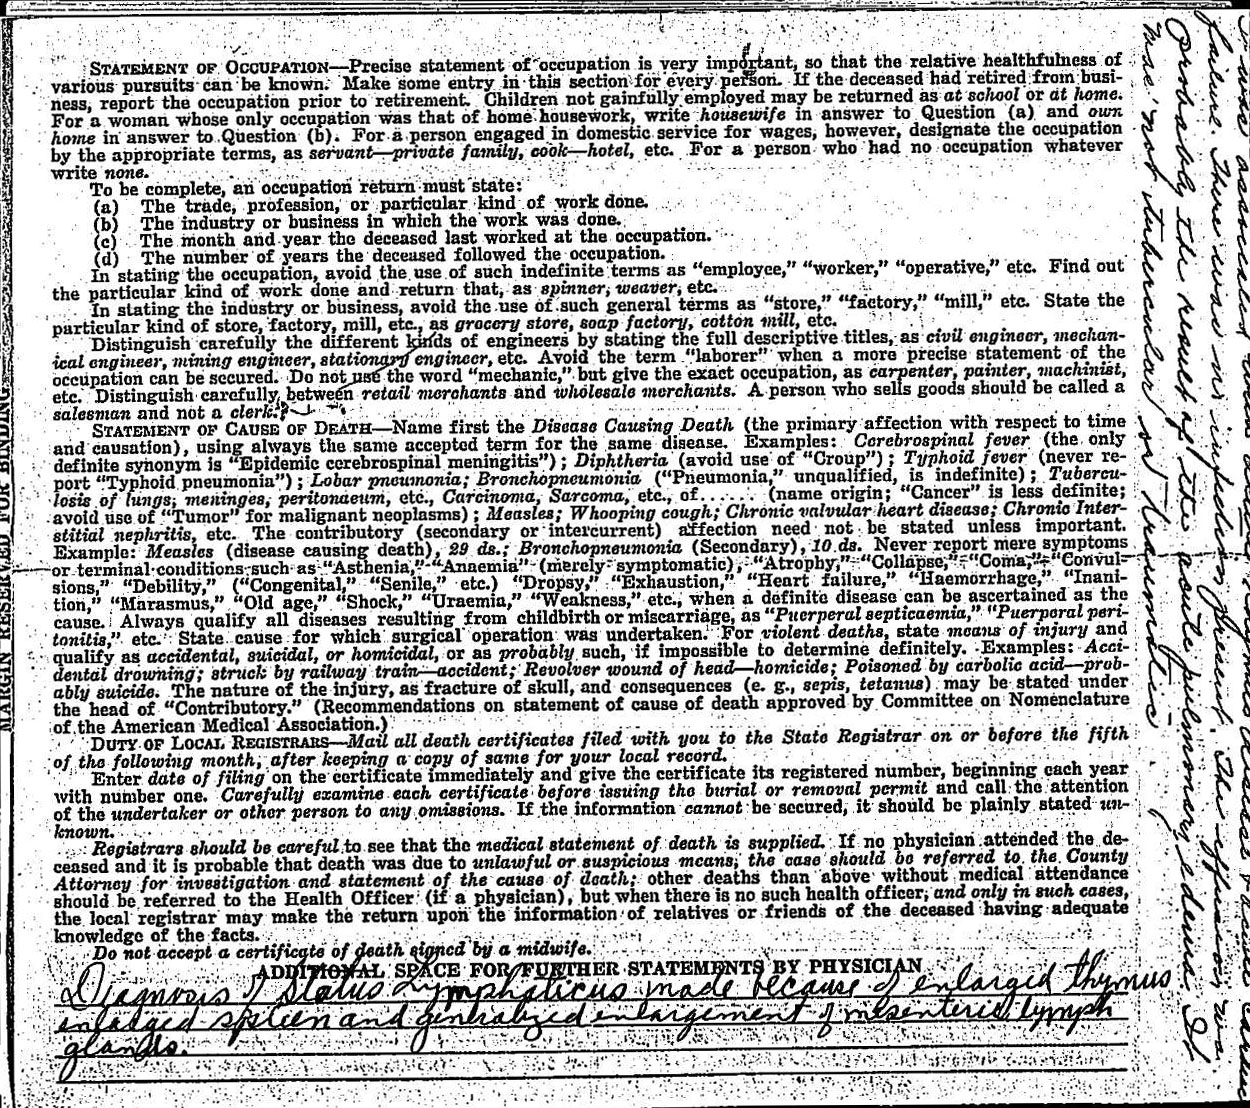 STATEMENT OF OCCUPATION—Precise statement of occupation is very important, so that the relative healthfulness of
various pursuits can be known. Make some entry in this section for every person. If the deceased had retired from busi-
ness, report the occupation prior to retirement. Children not gainfully employed may be returned as at school or at home.
For a woman whose only occupation was that of home housework, write housewife in answer to Question (a) and own
home in answer to Question (b). For a person engaged in domestic service for wages, however, designate the occupation
by the appropriate terms, as servant—private family, cook—hotel, etc. For a person who had no occupation whatever
write none.
To be complete, an occupation return must state:
(a) The trade, profession, or particular kind of work done.
(b) The industry or business in which the work was done.
(c) The month and year the deceased last worked at the occupation.
(d) The number of years the deceased followed the occupation.
In stating the occupation, avoid the use of such indefinite terms as “employee,” “worker,” “operative,” etc. Find out
the particular kind of work done and return that, as spinner, weaver, etc.
In stating the industry or business, avoid the use of such general terms as “store,” “factory,” “mill,” etc. State the
particular kind of store, factory, mill, etc., as grocery store, soap factory, cotton mill, etc.
Distinguish carefully the different kinds of engineers by stating the full descriptive titles, as civil engineer, mechan-
ical engineer, mining engineer, stationary engineer, etc. Avoid the term “laborer” when a more precise statement of the
occupation can be secured. Do not use the word “mechanic,” but give the exact occupation, as carpenter, painter, machinist,
etc. Distinguish carefully between retail merchants and wholesale merchants. A person who sells goods should be called a
salesman and not a clerk.
STATEMENT OF CAUSE OF DEATH—Name first the Disease Causing Death (the primary affection with respect to time
and causation), using always the same accepted term for the same disease. Examples: Cerebrospinal fever (the only
definite synonym is “Epidemic cerebrospinal meningitis”); Diphtheria (avoid use of “Croup”); Typhoid fever (never re-
port “Typhoid pneumonia”); Lobar pneumonia; Bronchopneumonia (“Pneumonia,” unqualified, is indefinite); Tubercu-
losis of lungs, meninges, peritonaeum, etc., Carcinoma, Sarcoma, etc., of...... (name origin; “Cancer” is less definite;
avoid use of “Tumor” for malignant neoplasms); Measles; Whooping cough; Chronic valvular heart disease; Chronic Inter-
stitial nephritis, etc. The contributory (secondary or intercurrent) affection need not be stated unless important.
Example: Measles (disease causing death), 29 ds.; Bronchopneumonia (Secondary), 10 ds. Never report mere symptoms
or terminal conditions such as “Asthenia,” “Anaemia” (merely symptomatic), “Atrophy,” “Collapse,” “Coma,” “Convul-
sions,” “Debility,” (“Congenital,” “Senile,” etc.) “Dropsy,” “Exhaustion,” “Heart failure,” “Haemorrhage,” “Inani-
tion,” “Marasmus,” “Old age,” “Shock,” “Uraemia,” “Weakness,” etc., when a definite disease can be ascertained as the
cause. Always qualify all diseases resulting from childbirth or miscarriage, as “Puerperal septicaemia,” “Puerperal peri-
tonitis,” etc. State cause for which surgical operation was undertaken. For violent deaths, state means of injury and
qualify as accidental, suicidal, or homicidal, or as probably such, if impossible to determine definitely. Examples: Acci-
dental drowning; struck by railway train—accident; Revolver wound of head—homicide; Poisoned by carbolic acid—prob-
ably suicide. The nature of the injury, as fracture of skull, and consequences (e. g., sepis, tetanus) may be stated under
the head of “Contributory.” (Recommendations on statement of cause of death approved by Committee on Nomenclature
of the American Medical Association.)
DUTY OF LOCAL REGISTRARS—Mail all death certificates filed with you to the State Registrar on or before the fifth
of the following month, after keeping a copy of same for your local record.
Enter date of filing on the certificate immediately and give the certificate its registered number, beginning each year
with number one. Carefully examine each certificate before issuing the burial or removal permit and call the attention
of the undertaker or other person to any omissions. If the information cannot be secured, it should be plainly stated un-
known.
Registrars should be careful to see that the medical statement of death is supplied. If no physician attended the de-
ceased and it is probable that death was due to unlawful or suspicious means, the case should be referred to the County
Attorney for investigation and statement of the cause of death; other deaths than above without medical attendance
should be referred to the Health Officer (if a physician), but when there is no such health officer, and only in such cases,
the local registrar may make the return upon the information of relatives or friends of the deceased having adequate
knowledge of the facts.
Do not accept a certificate of death signed by a midwife.
ADDITIONAL SPACE FOR FURTHER STATEMENTS BY PHYSICIAN
Diagnosis of Status Lymphaticus made because of enlarged thymus
enlarged spleen and generalized enlargement of mesenteric lymph
glands.
failure. There was no infection present. This effusion was
Probably the result of the acute pulmonary edema. It
was not tubercular or traumatic.
MARGIN RESERVED FOR BINDING